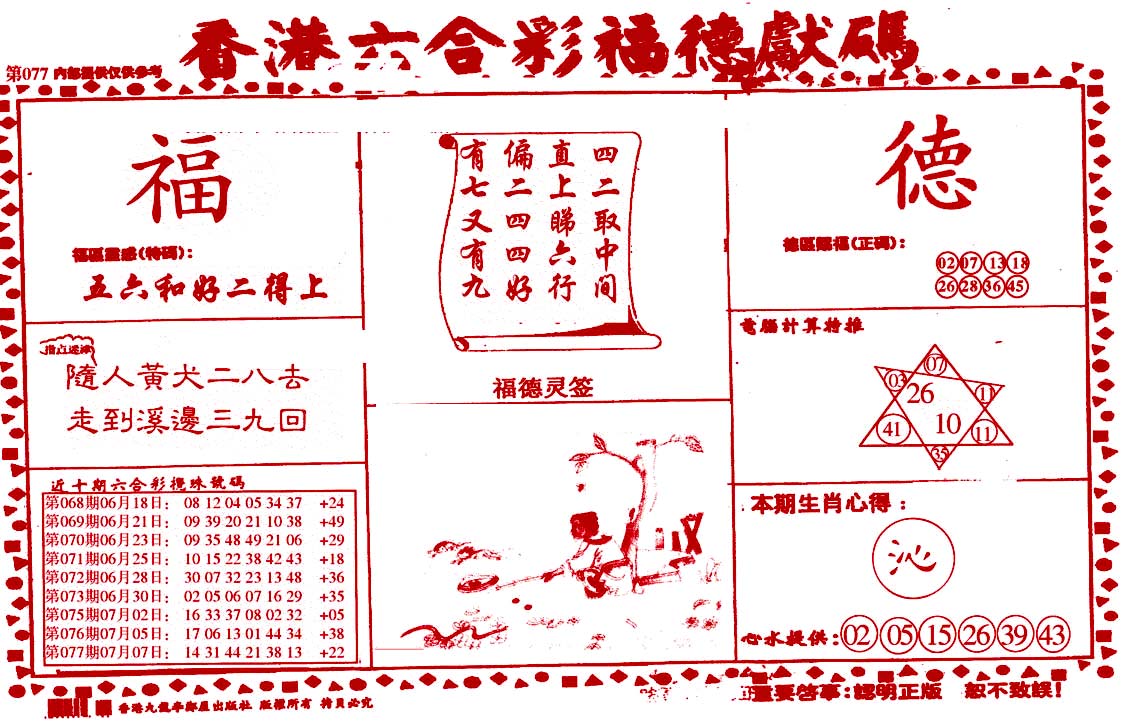 香港六合彩福德獻碼
第077 內部提供仅供参考
福
福區靈感(特碼):
五六和好二得上
四二取中间
直上睇六行
偏二四四好
有七又有九
福德灵签
德
德區賜福(正碼):
02 07 13 18
26 28 36 45
指点迷津
隨人黃犬二八去
走到溪邊三九回
電腦計算特推
07
03 26 11
41 10 11
35
近十期六合彩攪珠號碼
第068期06月18日: 08 12 04 05 34 37 +24
第069期06月21日: 09 39 20 21 10 38 +49
第070期06月23日: 09 35 48 49 21 06 +29
第071期06月25日: 10 15 22 38 42 43 +18
第072期06月28日: 30 07 32 23 13 48 +36
第073期06月30日: 02 05 06 07 16 29 +35
第075期07月02日: 16 33 37 08 02 32 +05
第076期07月05日: 17 06 13 01 44 34 +38
第077期07月07日: 14 31 44 21 38 13 +22
本期生肖心得:
沁
心水提供: 02 05 15 26 39 43
香港九龍 出版社 版權所有 持頁必究
重要啓事:認明正版 恕不致誤!